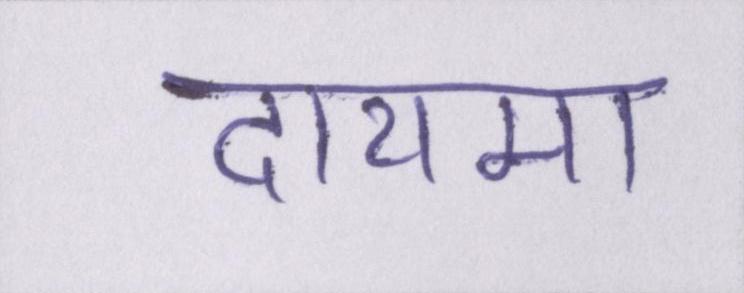 दायमा